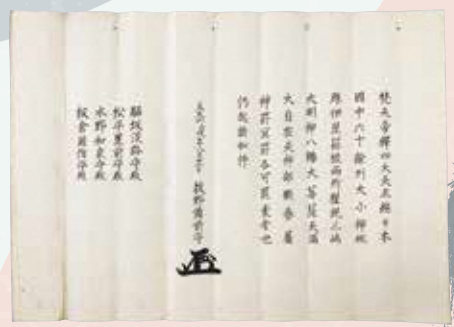 梵天帝釋四大天王惣日本
國中六十餘州大小神祇
殊伊豆箱根両所權現三嶋
大明神八幡大菩薩天満
大自在天神部類眷属
神罰冥罰各可罷蒙者也
仍起請如件
牧野備前守
脇坂淡路守殿
松平豊前守殿
水野和泉守殿
板倉周防守殿